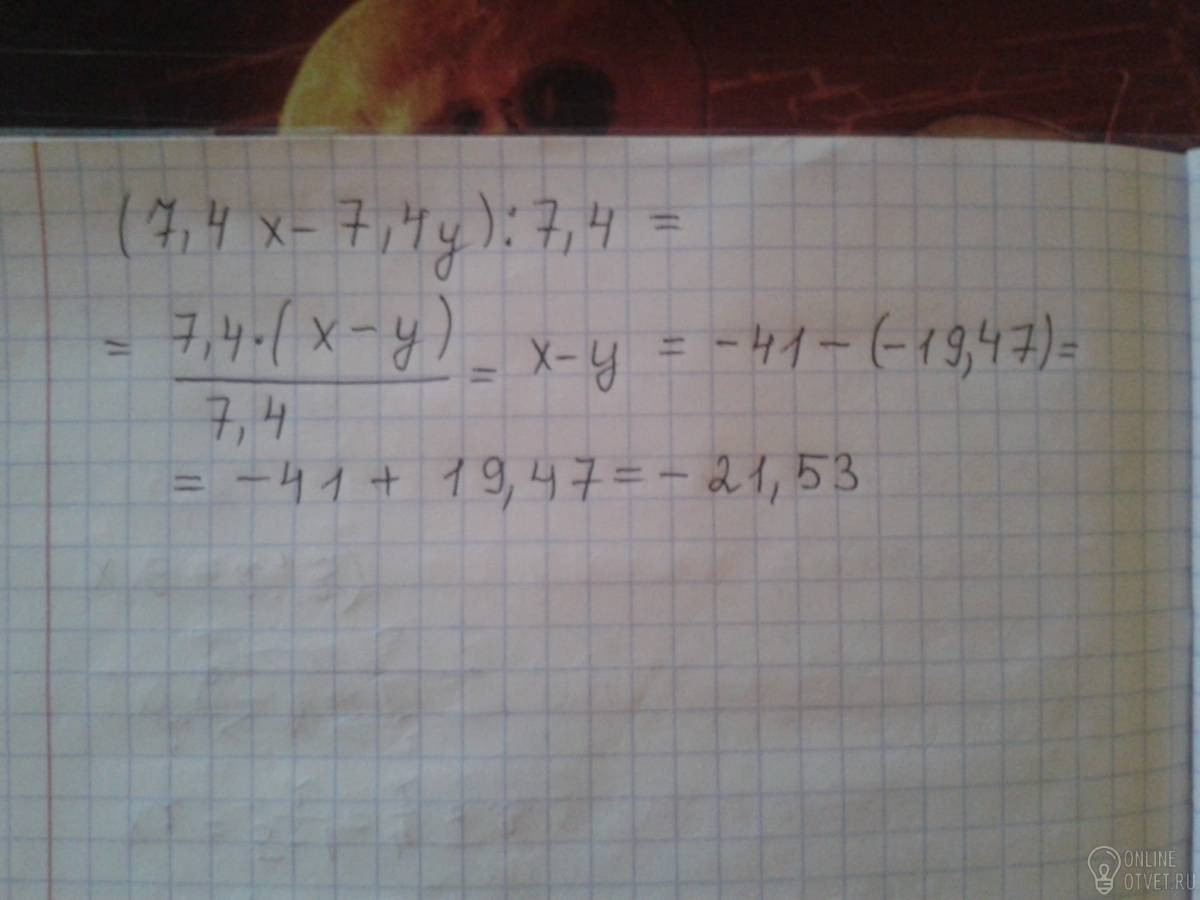 (7,4 x - 7,4y) : 7,4 =
= 7,4·(x - y) / 7,4 = x - y = -41 - (-19,47) =
= -41 + 19,47 = -21,53
ONLINE
OTVET.RU